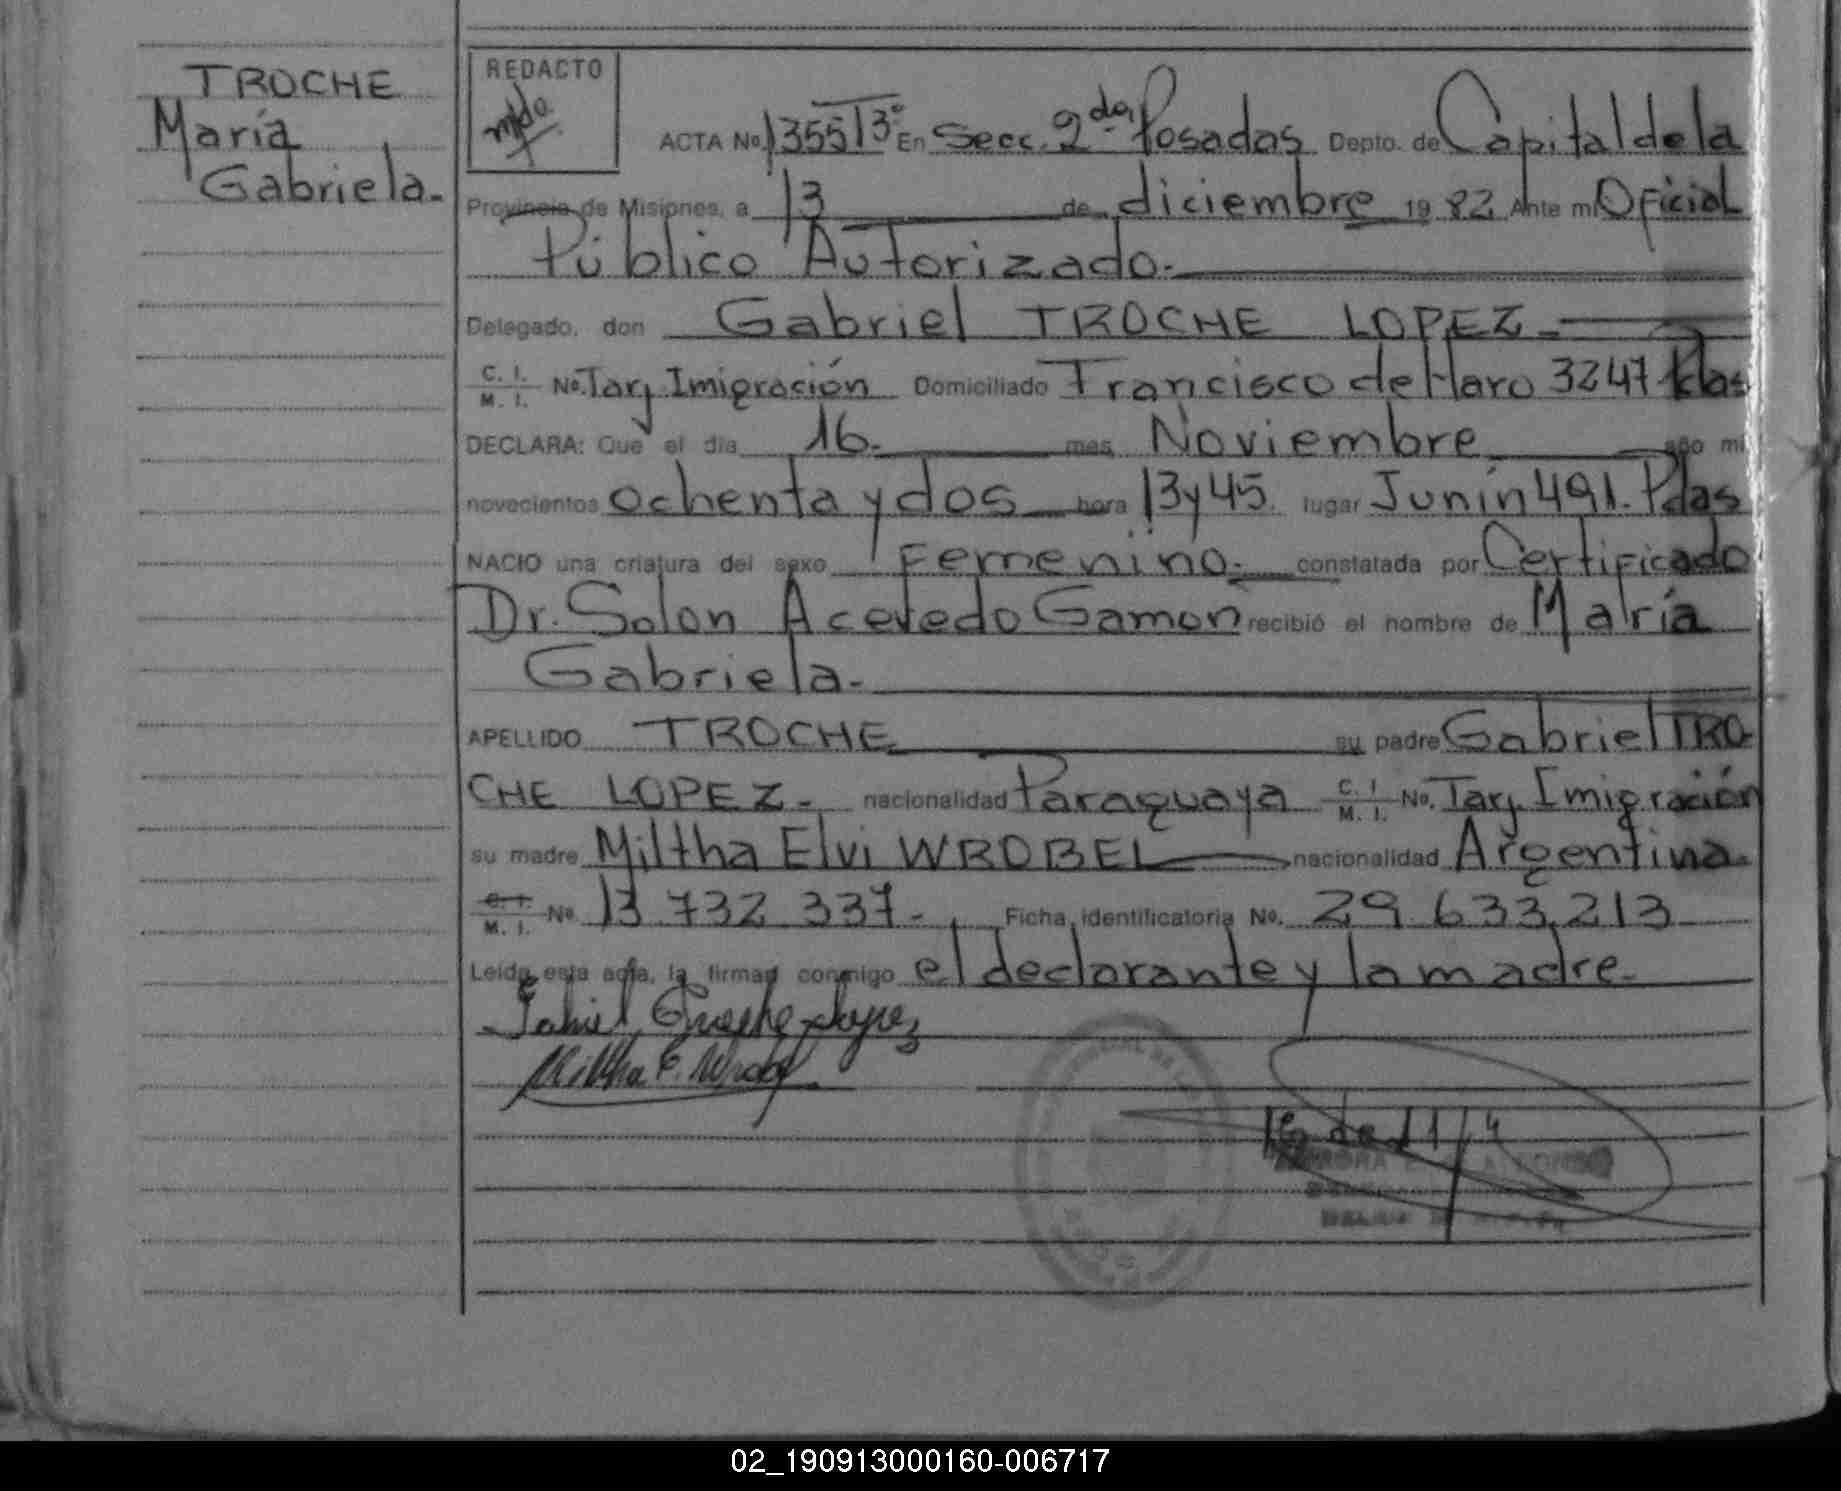 TROCHE
María
Gabriela.
REDACTO
ACTA No. 1355 T3º En Secc. 2da, Posadas Depto. de Capital de la
Provincia de Misiones, a 13 de diciembre 19 82 Ante mí Oficial
Público Autorizado.
Delegado, don Gabriel TROCHE LOPEZ.
C. I. M. I. No. Tarj Imigración Domiciliado Francisco de Haro 3247 Pdas
DECLARA: Que el día 16. mes Noviembre año mil
novecientos ochenta y dos hora 13y45. lugar Junín 491. Pdas
NACIO una criatura del sexo Femenino. constatada por Certificado
Dr. Solon Acevedo Gamon recibió el nombre de María
Gabriela.
APELLIDO TROCHE su padre Gabriel TRO-
CHE LOPEZ. nacionalidad Paraguaya C. I. M. I. No. Tarj. Imigración
su madre Miltha Elvi WROBEL nacionalidad Argentina.
C. I. M. I. No 13.732.337. Ficha identificatoria No. 29.633.213
Leída esta acta, la firman conmigo el declarante y la madre.
Gabriel Troche Lopez
Miltha E. Wrobel
02_190913000160-006717